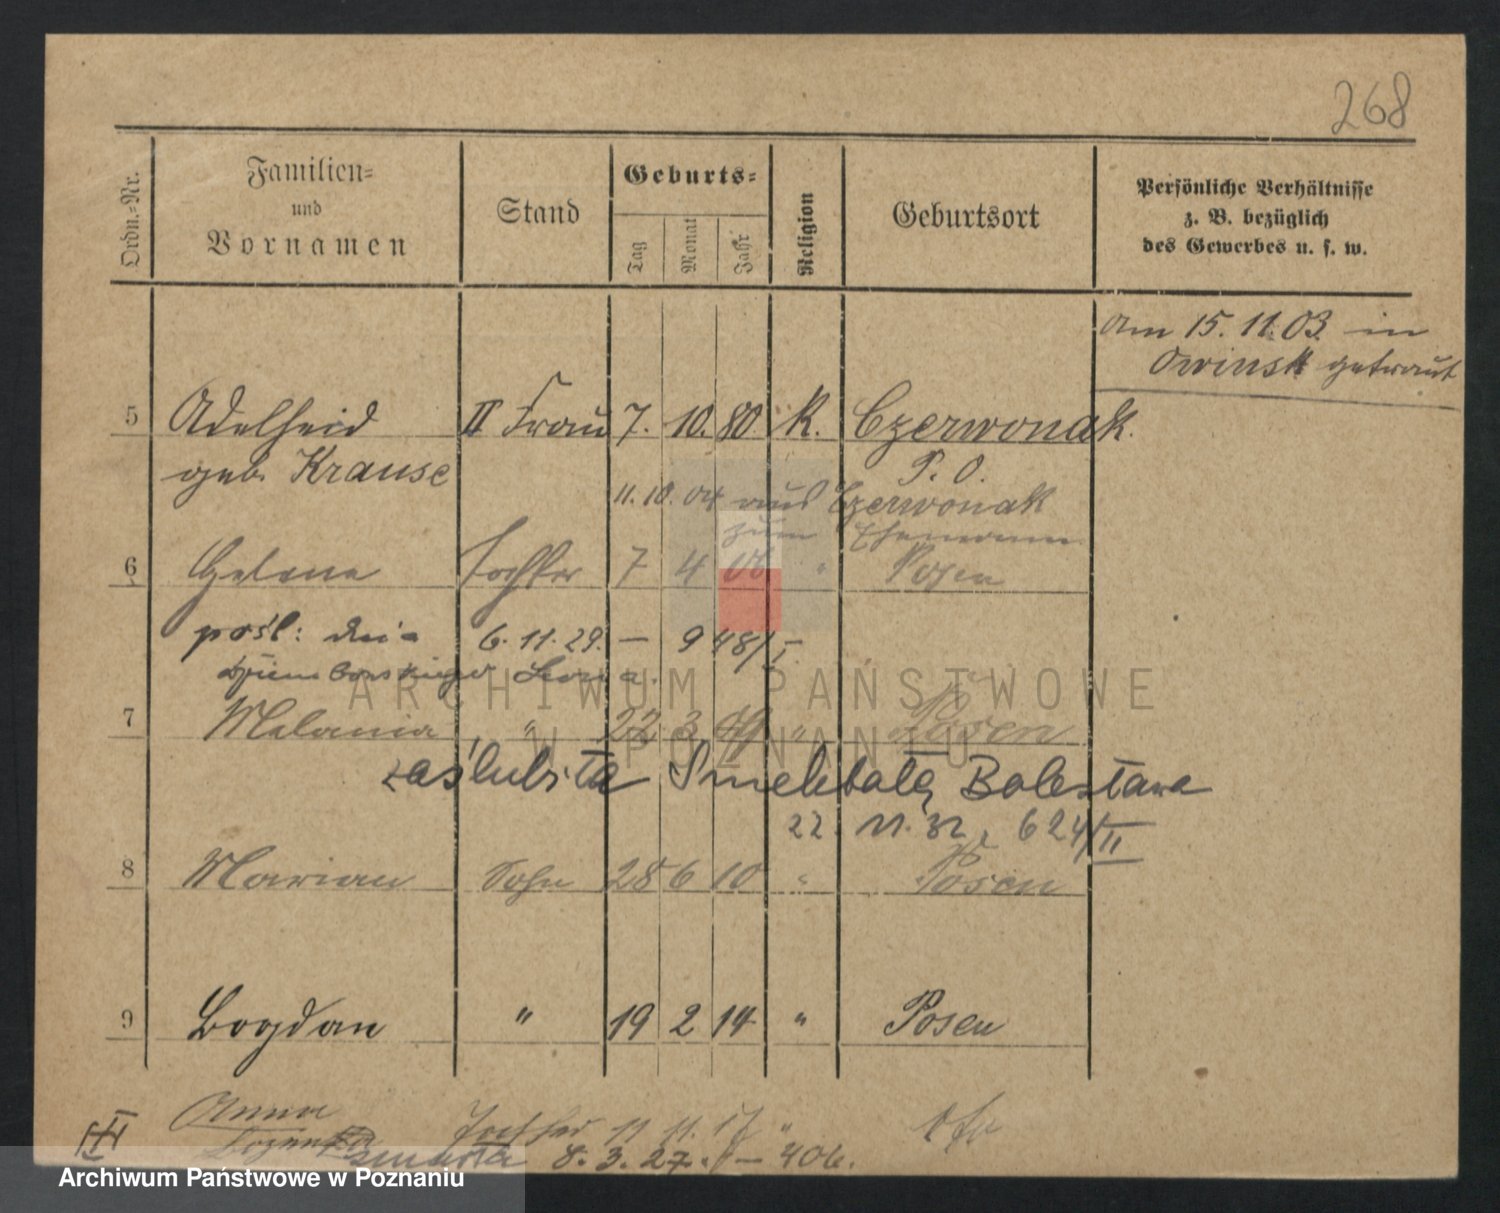 268
Ordn.-Nr.
Familien-
und
Vornamen
Stand
Geburts-
Tag
Monat
Jahr
Religion
Geburtsort
Persönliche Verhältnisse
z. B. bezüglich
des Gewerbes u. s. w.
Am 15. 11. 03. in
Owinsk getraut
5 Adelheid II Frau 7. 10. 80 K. Czerwonak.
geb. Krause P. O.
11. 10. 04 aus Czerwonak
zum Ehemann
6 Helene Tochter 7 4 06 " Posen
pośl: dnia 6. 11. 29. — 948/I.
Dziemborskiego Leona.
7 Melania " 22 3 09 " Posen
zaślubiła Bolesława
22. 11. 32, 624/II
8 Marian Sohn 28 6 10 " Posen
9 Bogdan " 19 2 14 " Posen
Anna Tochter 11 11 17 "
zmarła 8. 3. 27. — 406.
ARCHIWUM PAŃSTWOWE
W POZNANIU
Archiwum Państwowe w Poznaniu